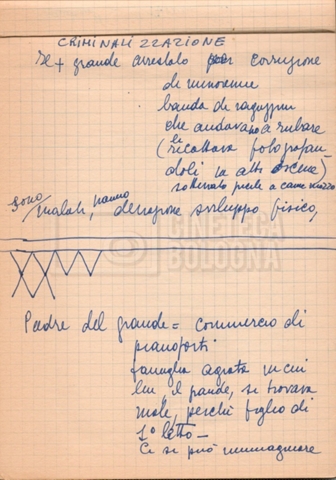 CRIMINALIZZAZIONE
Il + grande arrestato per corruzione
di minorenne
banda di ragazzini
che andavano a rubare
(li ricattava fotografan
doli in atti osceni)
sono malati, hanno deviazione sviluppo fisico,
CINETECA
BOLOGNA
Padre del grande = commercio di
pianoforti
famiglia agiata in cui
lui, il grande, si trovava
male, perché figlio di
1° letto –
Ci si può immaginare